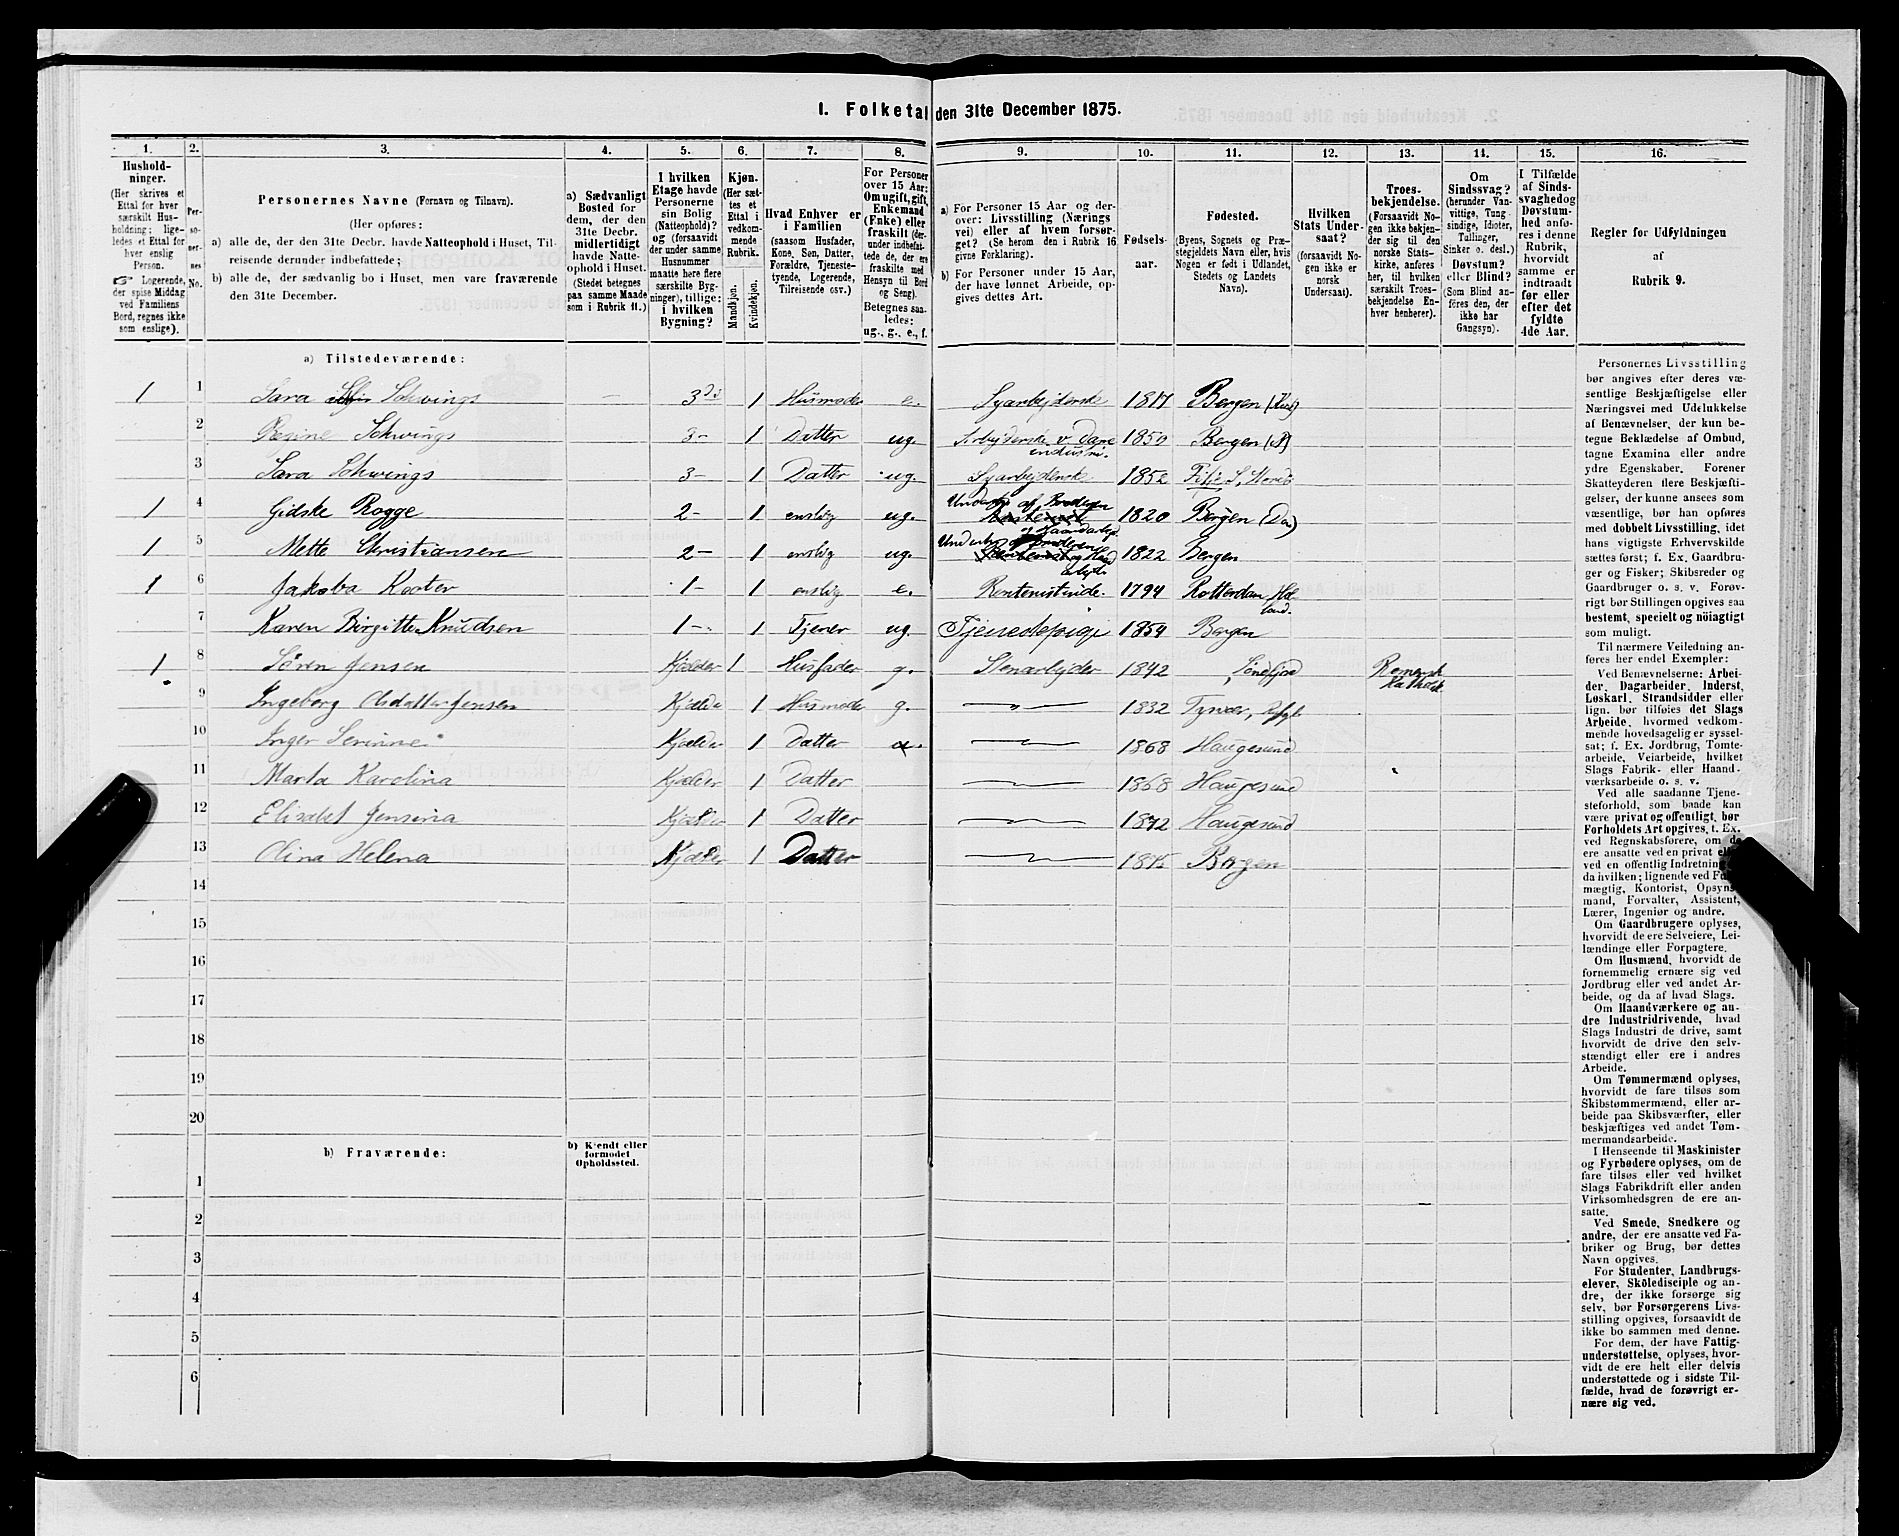 1. Folketal den 31te December 1875.
1. Husholdninger. (Her skrives et Ettal for hver særskilt Husholdning; ligeledes et Ettal for hver enslig Person. ☞ Logerende, der spise Middag ved Familiens Bord, regnes ikke som enslige).
2. Personernes No.
3. Personernes Navne (Fornavn og Tilnavn).
(Her opføres:
a) alle de, der den 31te Decbr. havde Natteophold i Huset, Tilreisende derunder indbefattede;
b) alle de, der sædvanlig bo i Huset, men vare fraværende den 31te December.
4. a) Sædvanligt Bosted for dem, der den 31te Decbr. midlertidigt havde Natteophold i Huset. (Stedet betegnes paa samme Maade som i Rubrik 11.)
5. I hvilken Etage havde Personerne sin Bolig (Natteophold)? og (forsaavidt der under samme Husnummer maatte høre flere særskilte Bygninger), tillige: i hvilken Bygning?
6. Kjøn. (Her sættes et Ettal i vedkommende Rubrik. Mandkjøn. Kvindekjøn.
7. Hvad Enhver er i Familien (saasom Husfader, Kone, Søn, Datter, Forældre, Tjenestetyende, Logerende, Tilreisende osv.)
8. For Personer over 15 Aar: Om ugift, gift, Enkemand (Enke) eller fraskilt (derunder indbefattede de, der ere fraskilte med Hensyn til Bord og Seng). Betegnes saaledes: ug., g., e., f.
9. a) For Personer 15 Aar og derover: Livsstilling (Næringsvei) eller af hvem forsørget? (Se herom den i Rubrik 16 givne Forklaring).
b) For Personer under 15 Aar, der have lønnet Arbeide, opgives dettes Art.
10. Fødselsaar.
11. Fødested. (Byens, Sognets og Præstegjeldets Navn eller, hvis Nogen er født i Udlandet, Stedets og Landets Navn).
12. Hvilken Stats Undersaat? (forsaavidt Nogen ikke er norsk Undersaat).
13. Troesbekjendelse. (Forsaavidt Nogen ikke bekjender sig til den norske Statskirke, anføres her, til hvilken særskilt Troesbekjendelse Enhver henhører).
14. Om Sindssvag? (herunder Vanvittige, Tungsindige, Idioter, Tullinger, Sinker o. desl.) Døvstum? eller Blind? (Som Blind anføres den, der ikke har Gangsyn).
15. I Tilfælde af Sindssvaghed og Døvstumhed anføres i denne Rubrik, hvorvidt samme er indtraadt før eller efter det fyldte 4de Aar.
16. Regler for Udfyldningen af Rubrik 9.
a) Tilstedeværende:
1 1 Sara Schwings – 3 1 Husmoder e. Syarbejderske 1817 Bergen
2 Regine Schwings 3 – 1 Datter ug. Arbejderske v Dane industri. 1850 Bergen
3 Sara Schwings 3 – 1 Datter ug. Syarbejderske 1852
1 4 Gidske Rogge 2 – 1 enslig ug. 1820 Bergen
1 5 Mette Christiansen 2 – 1 enslig ug. 1822 Bergen
1 6 Jakoba Koster 1 – 1 enslig e. Rentenistinde. 1794 Rotterdam Holland.
7 Karen Birgitte Knudsen 1 – 1 Tjener ug. Tjenestepige 1854 Bergen
1 8 Sören Jensen Kjælder 1 Husfader g. Stenarbejder 1842 Söndfjord Romersk Katholsk
9 Ingeborg Jensen Kjælder 1 Husmoder g. 1832 Tysvær,
10 Inger Serinne Kjælder 1 Datter 1868 Haugesund
11 Marta Karolina Kjælder 1 Datter 1868 Haugesund
12 Elisabet Jensina Kjælder 1 Datter 1872 Haugesund
13 Olina Helena Kjælder 1 Datter 1875 Bergen
14
15
16
17
18
19
20
b) Fraværende:
b) Kjendt eller formodet Opholdssted.
1
2
3
4
5
6
Personernes Livsstilling
bør angives efter deres væ-
sentlige Beskjæftigelse eller
Næringsvei med Udelukkelse
af Benævnelser, der kun be-
tegne Beklædelse af Ombud,
tagne Examina eller andre
ydre Egenskaber. Forener
Skatteyderen flere Beskjæfti-
gelser, der kunne ansees som
væsentlige, bør han opføres
med dobbelt Livsstilling, idet
hans vigtigste Erhvervskilde
sættes først; f. Ex. Gaardbru-
ger og Fisker; Skibsreder og
Gaardbruger o. s. v. Forøv-
rigt bør Stillingen opgives saa
bestemt, specielt og nöiagtigt
som muligt.
Til nærmere Veiledning an-
føres her endel Exempler:
Ved Benævnelserne: Arbei-
der, Dagarbeider, Inderst,
Løskarl, Strandsidder eller
lign. bør tilføies det Slags
Arbeide, hvormed vedkom-
mende hovedsagelig er syssel-
sat; f. Ex. Jordbrug, Tomte-
arbeide, Veiarbeide, hvilket
Slags Fabrik- eller Haand-
værksarbeide o. s. v.
Ved alle saadanne Tjene-
steforhold, som baade kan
være privat og offentligt, bør
Forholdets Art opgives, t. Ex.
ved Regnskabsførere, om de
ere ansatte ved en privat el
ved en offentlig Indretning
da hvilken; lignende ved F
mægtig, Kontorist, Opsyns-
mand, Forvalter, Assistent,
Lærer, Ingeniør og andre.
Om Gaardbrugere oplyses,
hvorvidt de ere Selveiere, Lei-
lændinge eller Forpagtere.
Om Husmænd, hvorvidt de
fornemmelig ernære sig ved
Jordbrug eller ved andet Ar-
beide, og da af hvad Slags.
Om Haandværkere og an-
dre Industridrivende, hvad
Slags Industri de drive, samt
hvorvidt de drive den selv-
stændigt eller ere i andres
Arbeide.
Om Tømmermænd oplyses,
hvorvidt de fare tilsøs som
Skibstømmermænd, eller ar-
beide paa Skibsværfter, eller
beskjæftiges ved andet Tøm-
mermandsarbeide.
I Henseende til Maskinister
og Fyrbødere oplyses, om de
fare tilsøs eller ved hvilket
Slags Fabrikdrift eller anden
Virksomhedsgren de ere an-
satte.
Ved Smede, Snedkere og
andre, der ere ansatte ved Fa-
briker og Brug, bør dettes
Navn opgives.
For Studenter, Landbrugs-
elever, Skoledisciple og an-
dre, der ikke forsørge sig
selv, bør Forsørgerens Livs-
stilling opgives, forsaavidt de
ikke bo sammen med denne.
For dem, der have Fattig-
understøttelse, oplyses, hvor-
vidt de ere helt eller delvis
understøttede og i sidste Til-
fælde, hvad de forøvrigt er-
nære sig ved.